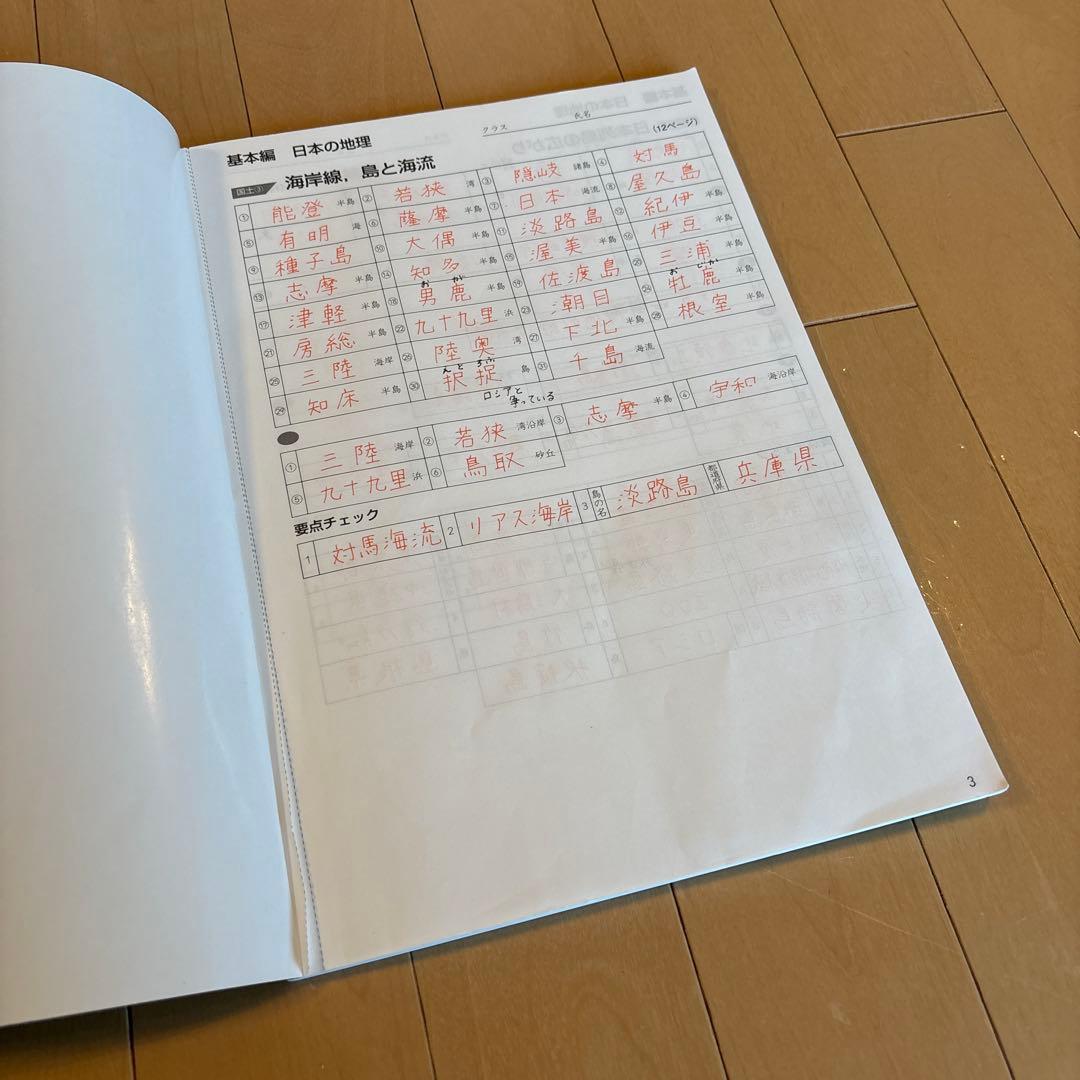 基本編 日本の地理
クラス 氏名
(12ページ)
国土③ 海岸線，島と海流
① 能登 半島 ② 若狭 湾 ③ 隠岐 諸島 ④ 対馬
⑤ 有明 海 ⑥ 薩摩 半島 ⑦ 日本 海流 ⑧ 屋久島
⑨ 種子島 ⑩ 大偶 半島 ⑪ 淡路島 ⑫ 紀伊 半島
⑬ 志摩 半島 ⑭ 知多 半島 ⑮ 渥美 半島 ⑯ 伊豆 半島
⑰ 津軽 半島 ⑱ 男鹿 半島 ⑲ 佐渡島 ⑳ 三浦 半島
おが
おじか
㉑ 房総 半島 ㉒ 九十九里 浜 ㉓ 潮目 ㉔ 牡鹿 半島
㉕ 三陸 海岸 ㉖ 陸奥 湾 ㉗ 下北 半島 ㉘ 根室 半島
えとろふ
㉙ 知床 半島 ㉚ 択捉 島 ㉛ 千島 海流
ロシアと
争っている
① 三陸 海岸 ② 若狭 湾沿岸 ③ 志摩 半島 ④ 宇和 海沿岸
⑤ 九十九里 浜 ⑥ 鳥取 砂丘
要点チェック
1 対馬海流 2 リアス海岸 3 島の名 淡路島 都道府県 兵庫県
3